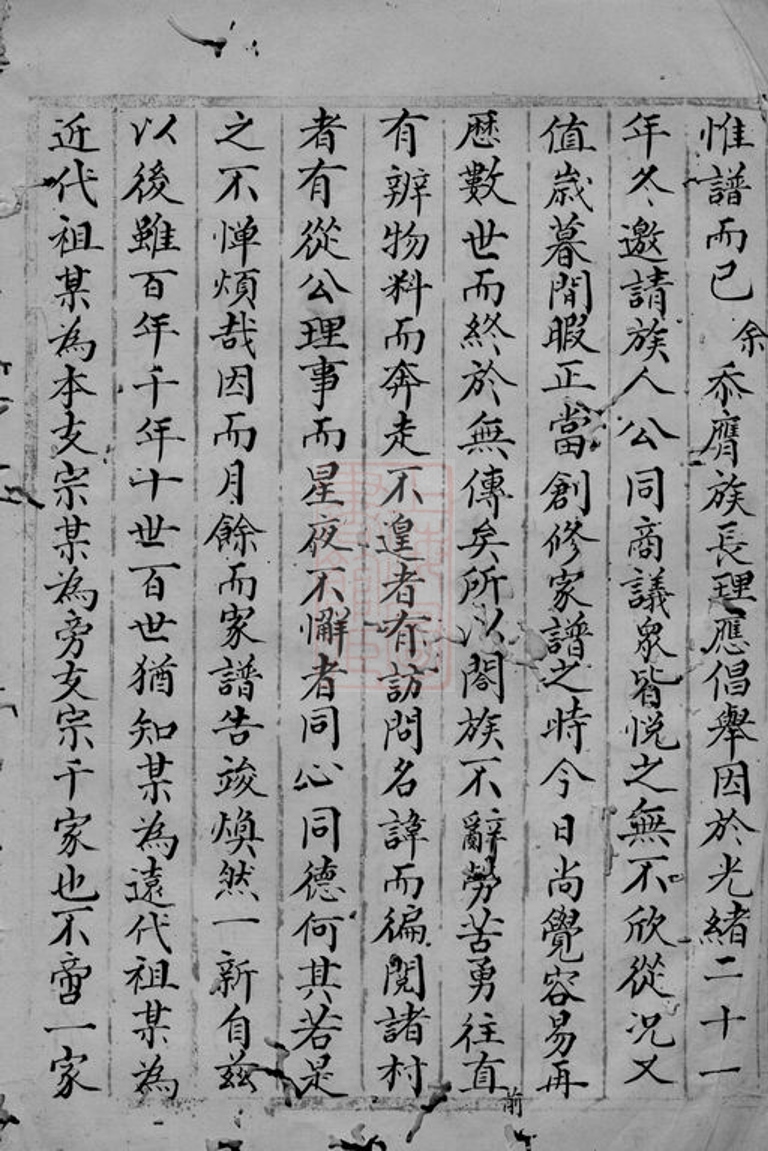 惟譜而已余忝膺族長理應倡舉因於光緒二十一
年冬邀請族人公同商議衆皆悅之無不欣從況又
值歲暮閒暇正當創修家譜之時今日尚覺容易再
歷數世而終於無傳矣所以閤族不辭勞苦勇往直前
有辦物料而奔走不遑者有訪問名諱而徧閱諸村
者有從公理事而星夜不懈者同心同德何其若是
之不憚煩哉因而月餘而家譜告竣煥然一新自茲
以後雖百年千年十世百世猶知某為遠代祖某為
近代祖某為本支宗某為旁支宗千家也不啻一家